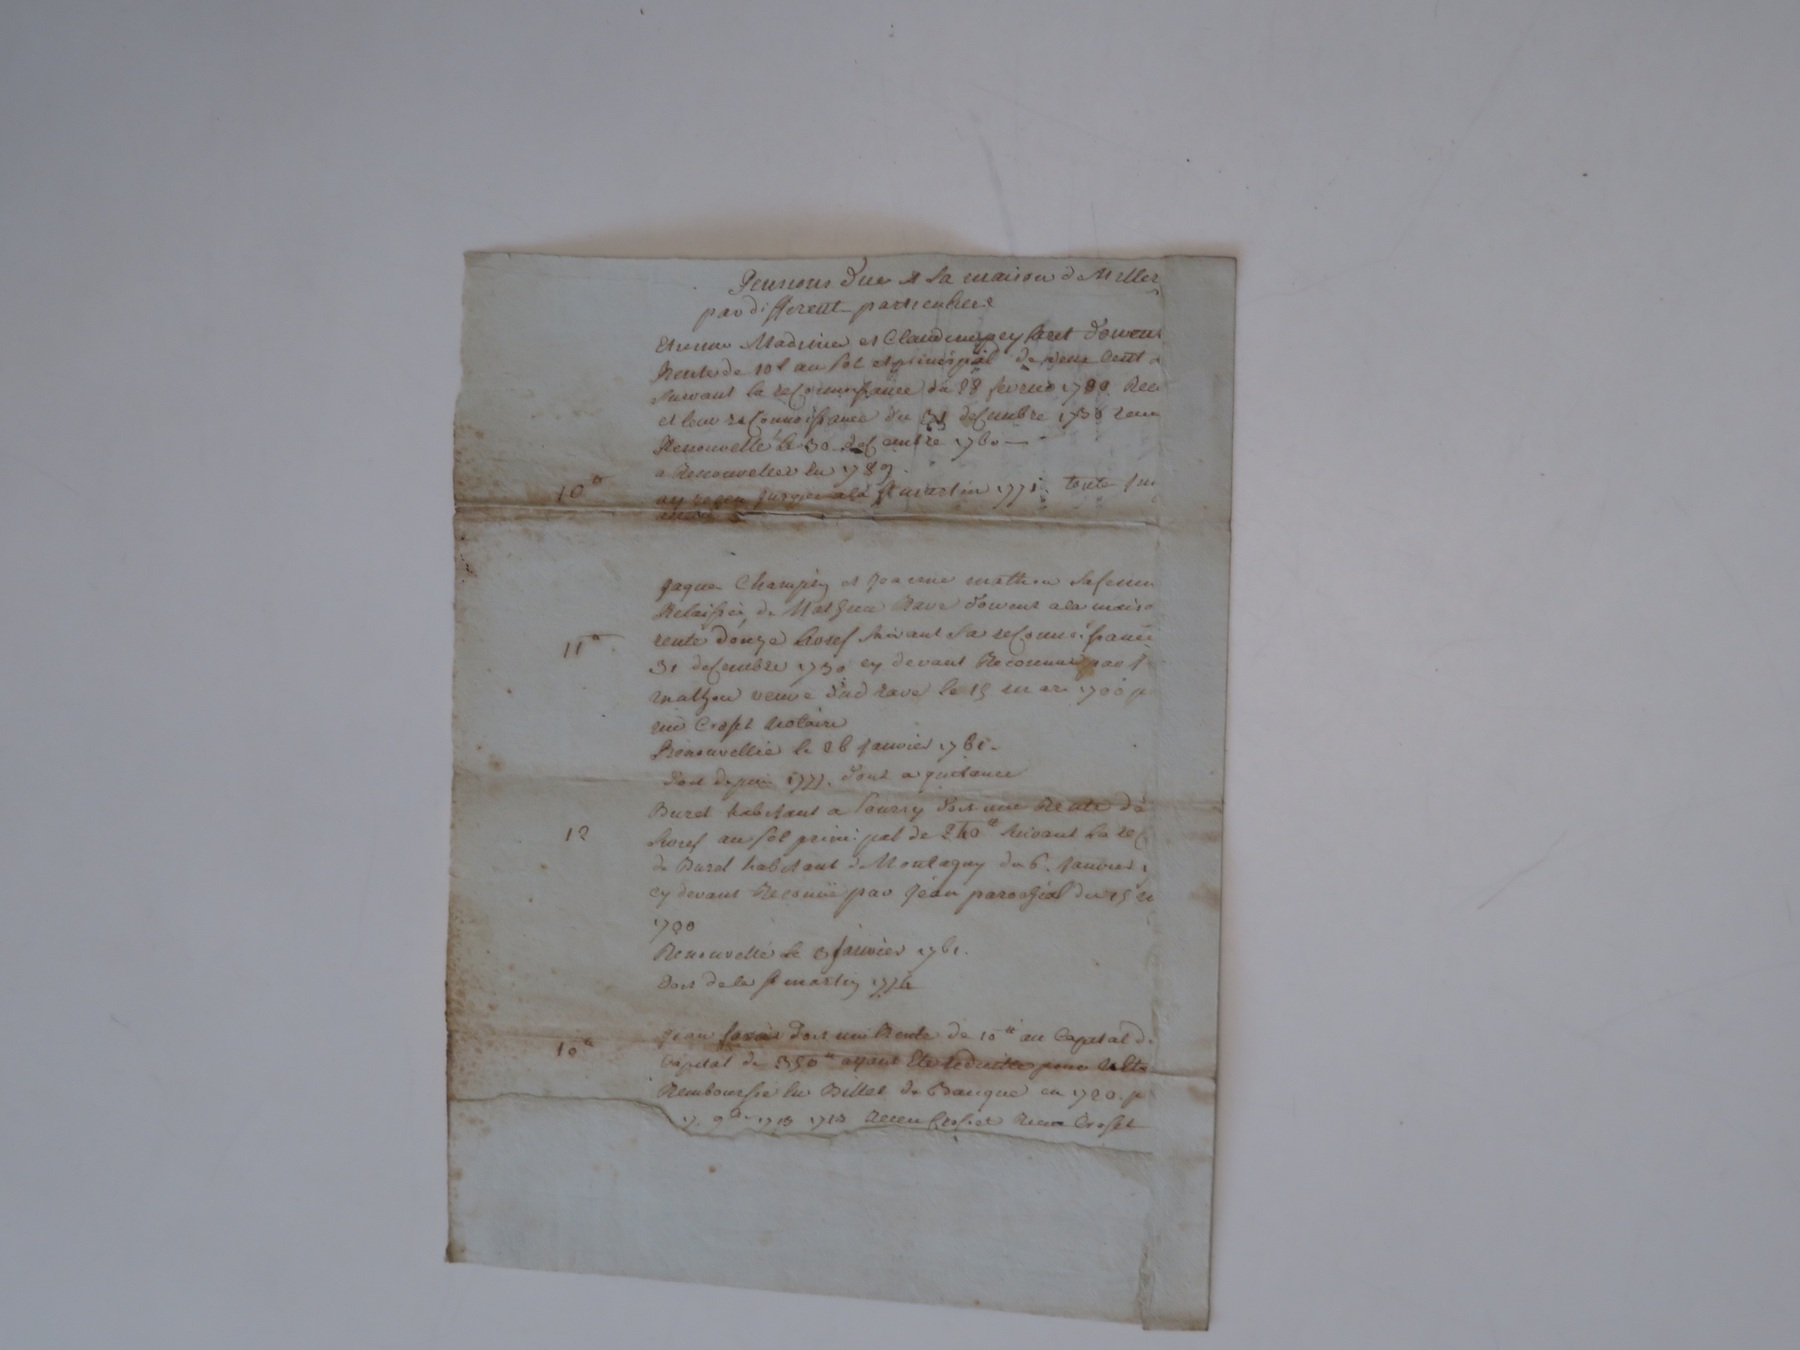 Pensions due a la maison de Miller
par different particuliers
Etienne Madinier et Claude doivent
Rente de 10 # au sol et principal de deux cent
suivant la reconnoissance du 28 fevrier 1720
et leur reconnoissance du 31 decembre 1730
Renouvellé le 30 decembre 1760
a Renouveller en 1789.
10 # a la st martin 1771. toute
Jaques Champin et Jeanne mathieu sa femme
Relaissée de Mathieu Rave doivent a la maiso
11 # rente d'onze livres suivant sa reconnoissance
31 decembre 1730 cy devant Reconnue par
mathieu veuve dud Rave le 15 mars 1700
Croset Notaire
Renouvellée le 26 Janvier 1761.
Doit depuis 1777. dont a quitance
12 Burel habitant a Sourcy doit une Rente de
livres au sol principal de 240 # suivant la rec
de Burel habitant de Montagny du 6. Janvier
cy devant Reconnue par Jean du 15
1700
Renouvellé le 3 Janvier 1761.
Doit de la st martin 1774
10 # Jean doit une Rente de 10 # au Capital de
Capital de 350 # ayant Eté reduitte pour
Remboursée en Billet de Banque en 1720.
17. 9bre 1713 1713 Croset